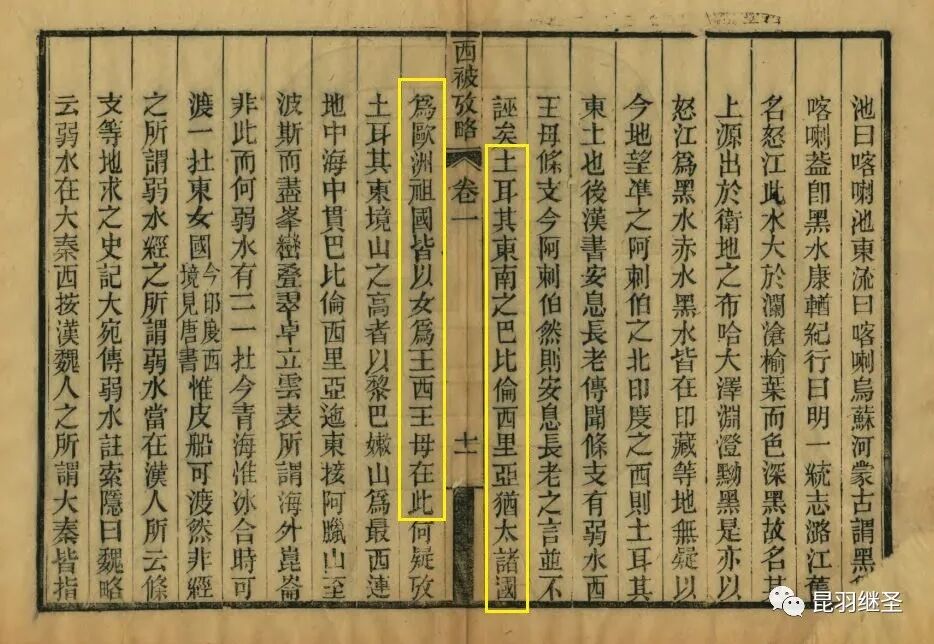 池曰喀喇池東流曰喀喇烏蘇河蒙古謂黑
喀喇葢卽黑水康輶紀行曰明一統志潞江舊
名怒江此水大於瀾滄榆葉而色深黑故名其
上源出於衛地之布哈大澤淵澄黝黑是亦以
怒江爲黑水赤水黑水皆在印藏等地無疑以
今地望準之阿剌伯之北印度之西則土耳其
東土也後漢書安息長老傳聞條支有弱水西
王母條支今阿剌伯然則安息長老之言並不
誣矣土耳其東南之巴比倫西里亞猶太諸國
西被攷略
卷一
十一
爲歐洲祖國皆以女爲王西王母在此何疑攷
土耳其東境山之高者以黎巴嫩山爲最西連
地中海中貫巴比倫西里亞迤東接阿臘山至
波斯而盡峯巒疊翠卓立雲表所謂海外崑崙
非此而何弱水有二一扗今青海惟冰合時可
渡一扗東女國今印度西境見唐書惟皮船可渡然非經
之所謂弱水經之所謂弱水當在漢人所云條
支等地求之史記大宛傳弱水註索隱曰魏略
云弱水在大秦西按漢魏人之所謂大秦皆指
昆羽继圣